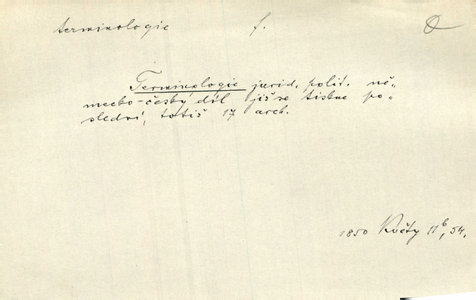 terminologie f.
Terminologie jurid. polit. ně=
mecko-český díl již se tiskne po=
slední, totiž 17 arch.
1850 Květy 11b, 54.